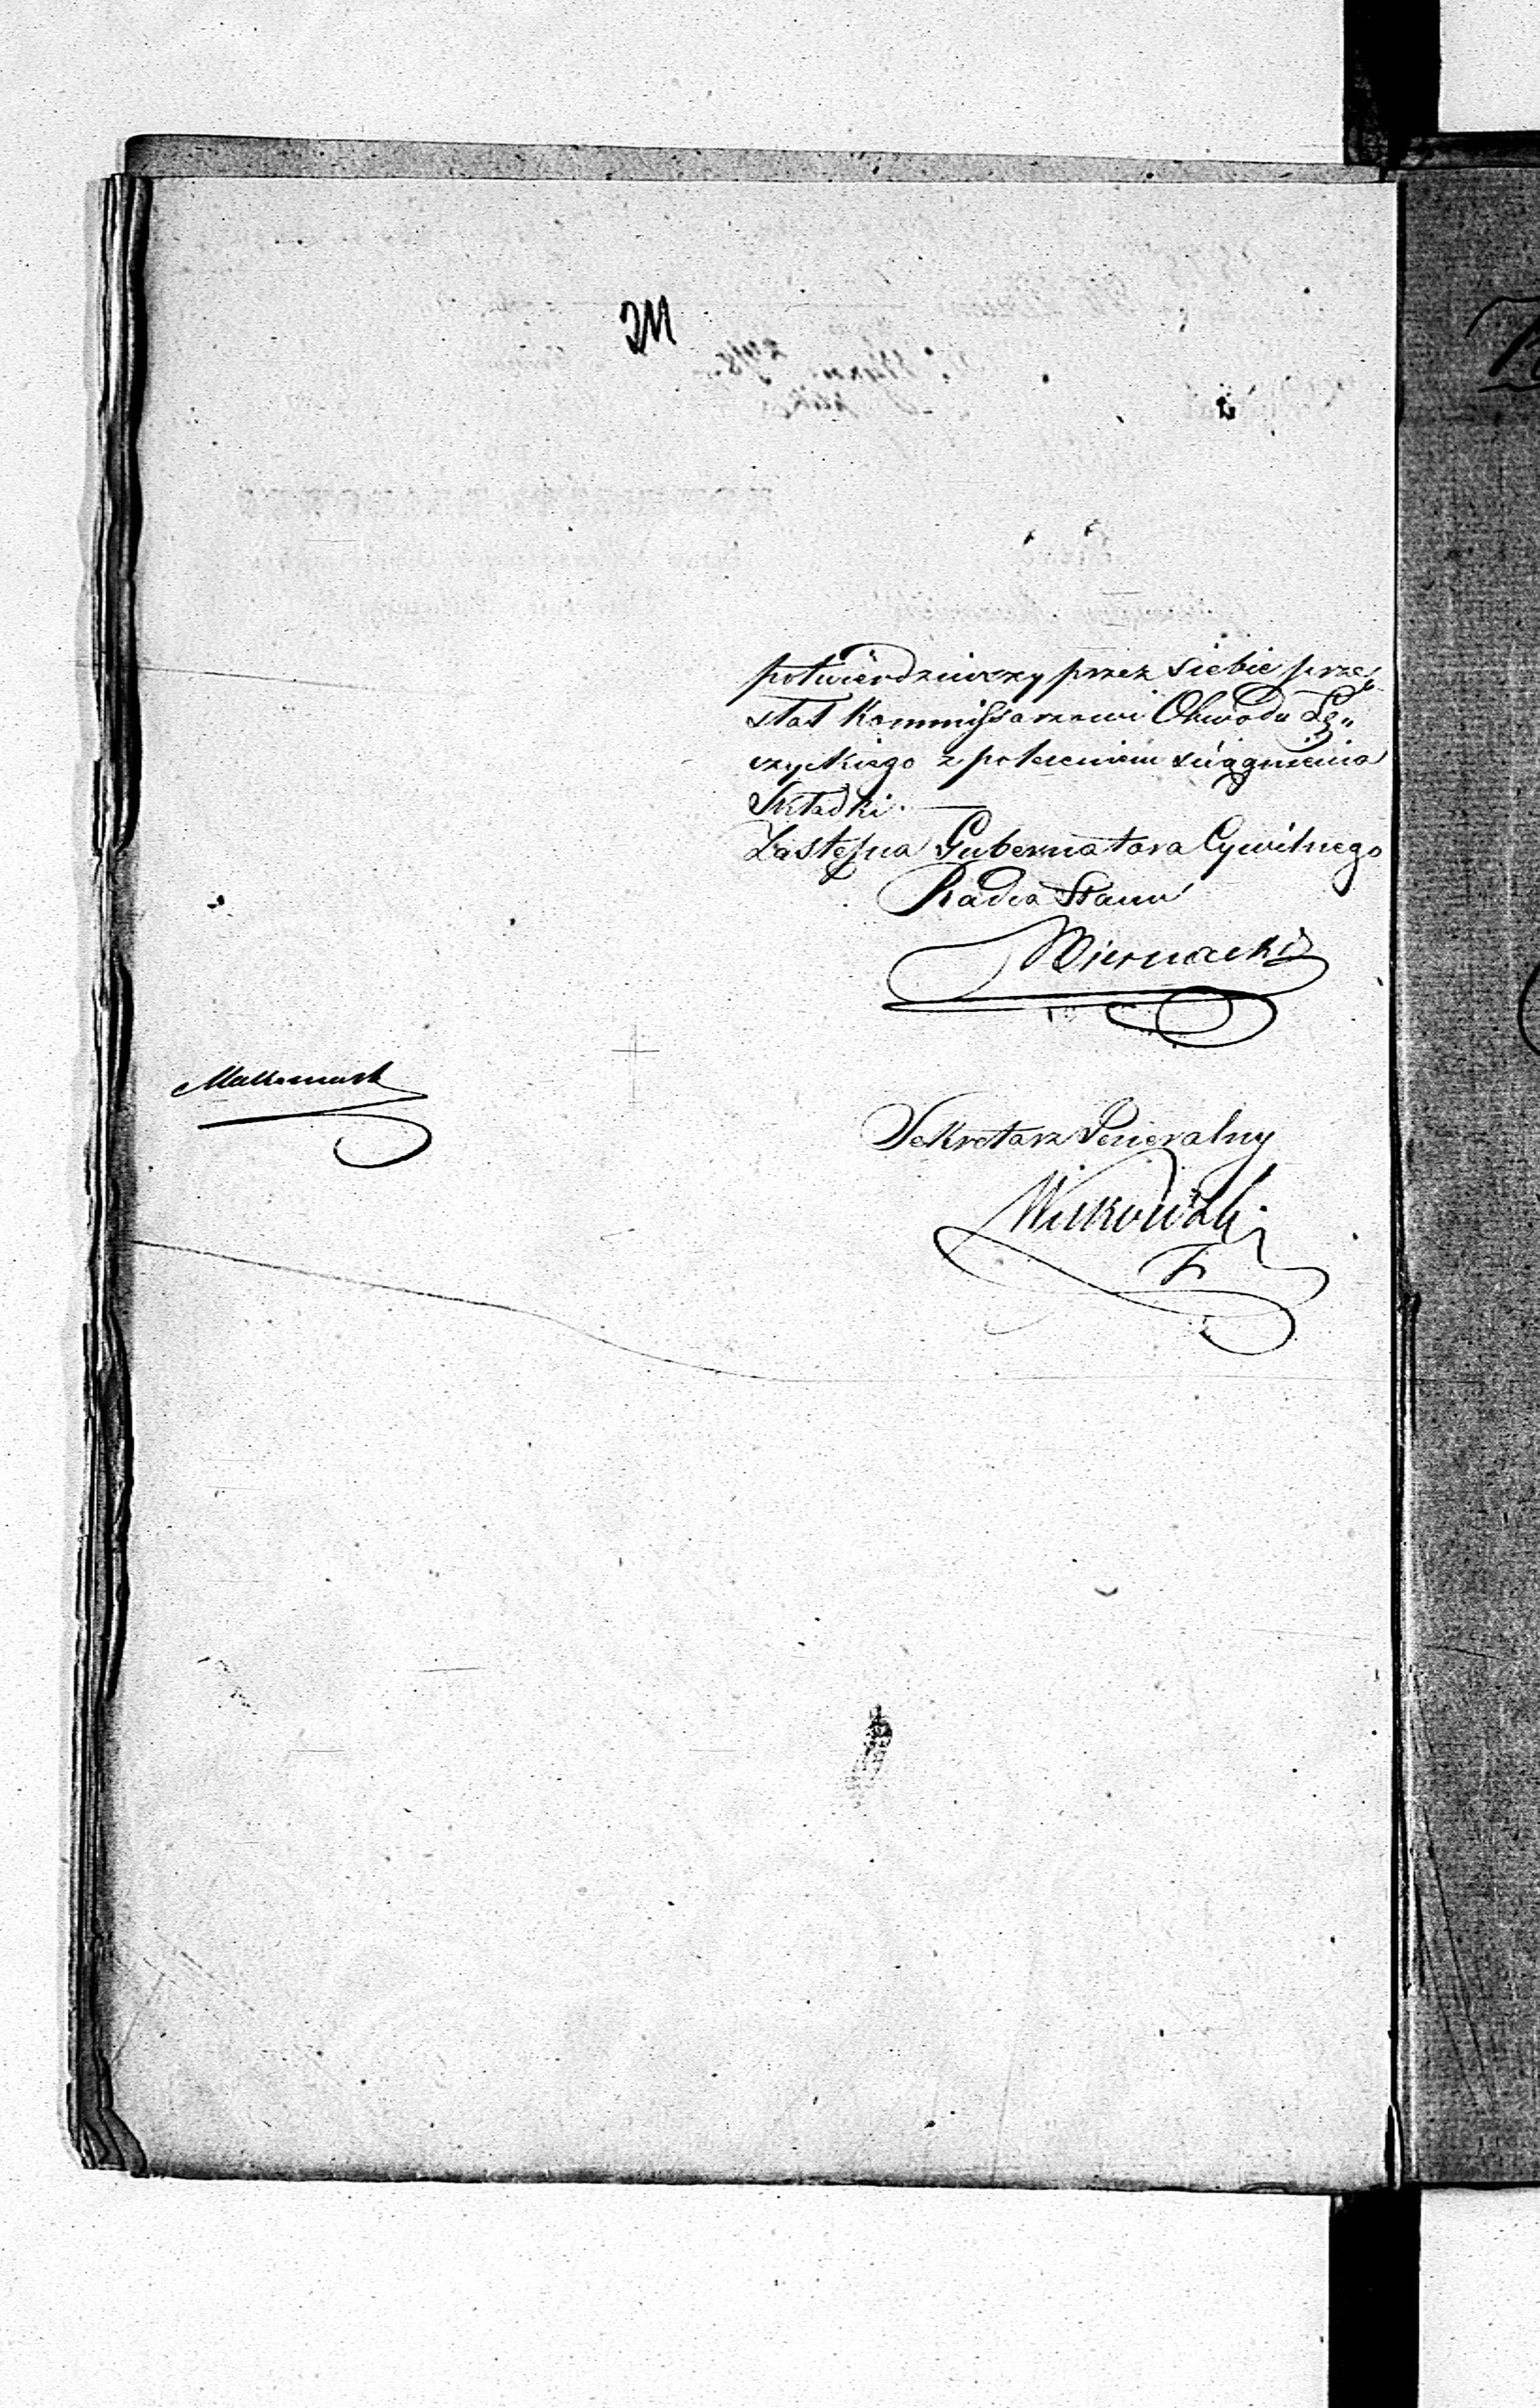 potwierdziwszy przez siebie prze„
słał Kommissarzowi Obwodu Łę„
czyckiego z poleceniem ściągnienia
Składki. —
Zastępca Gubernatora Cywilnego
Radca Stanu
Biernacki
Sekretarz Jeneralny